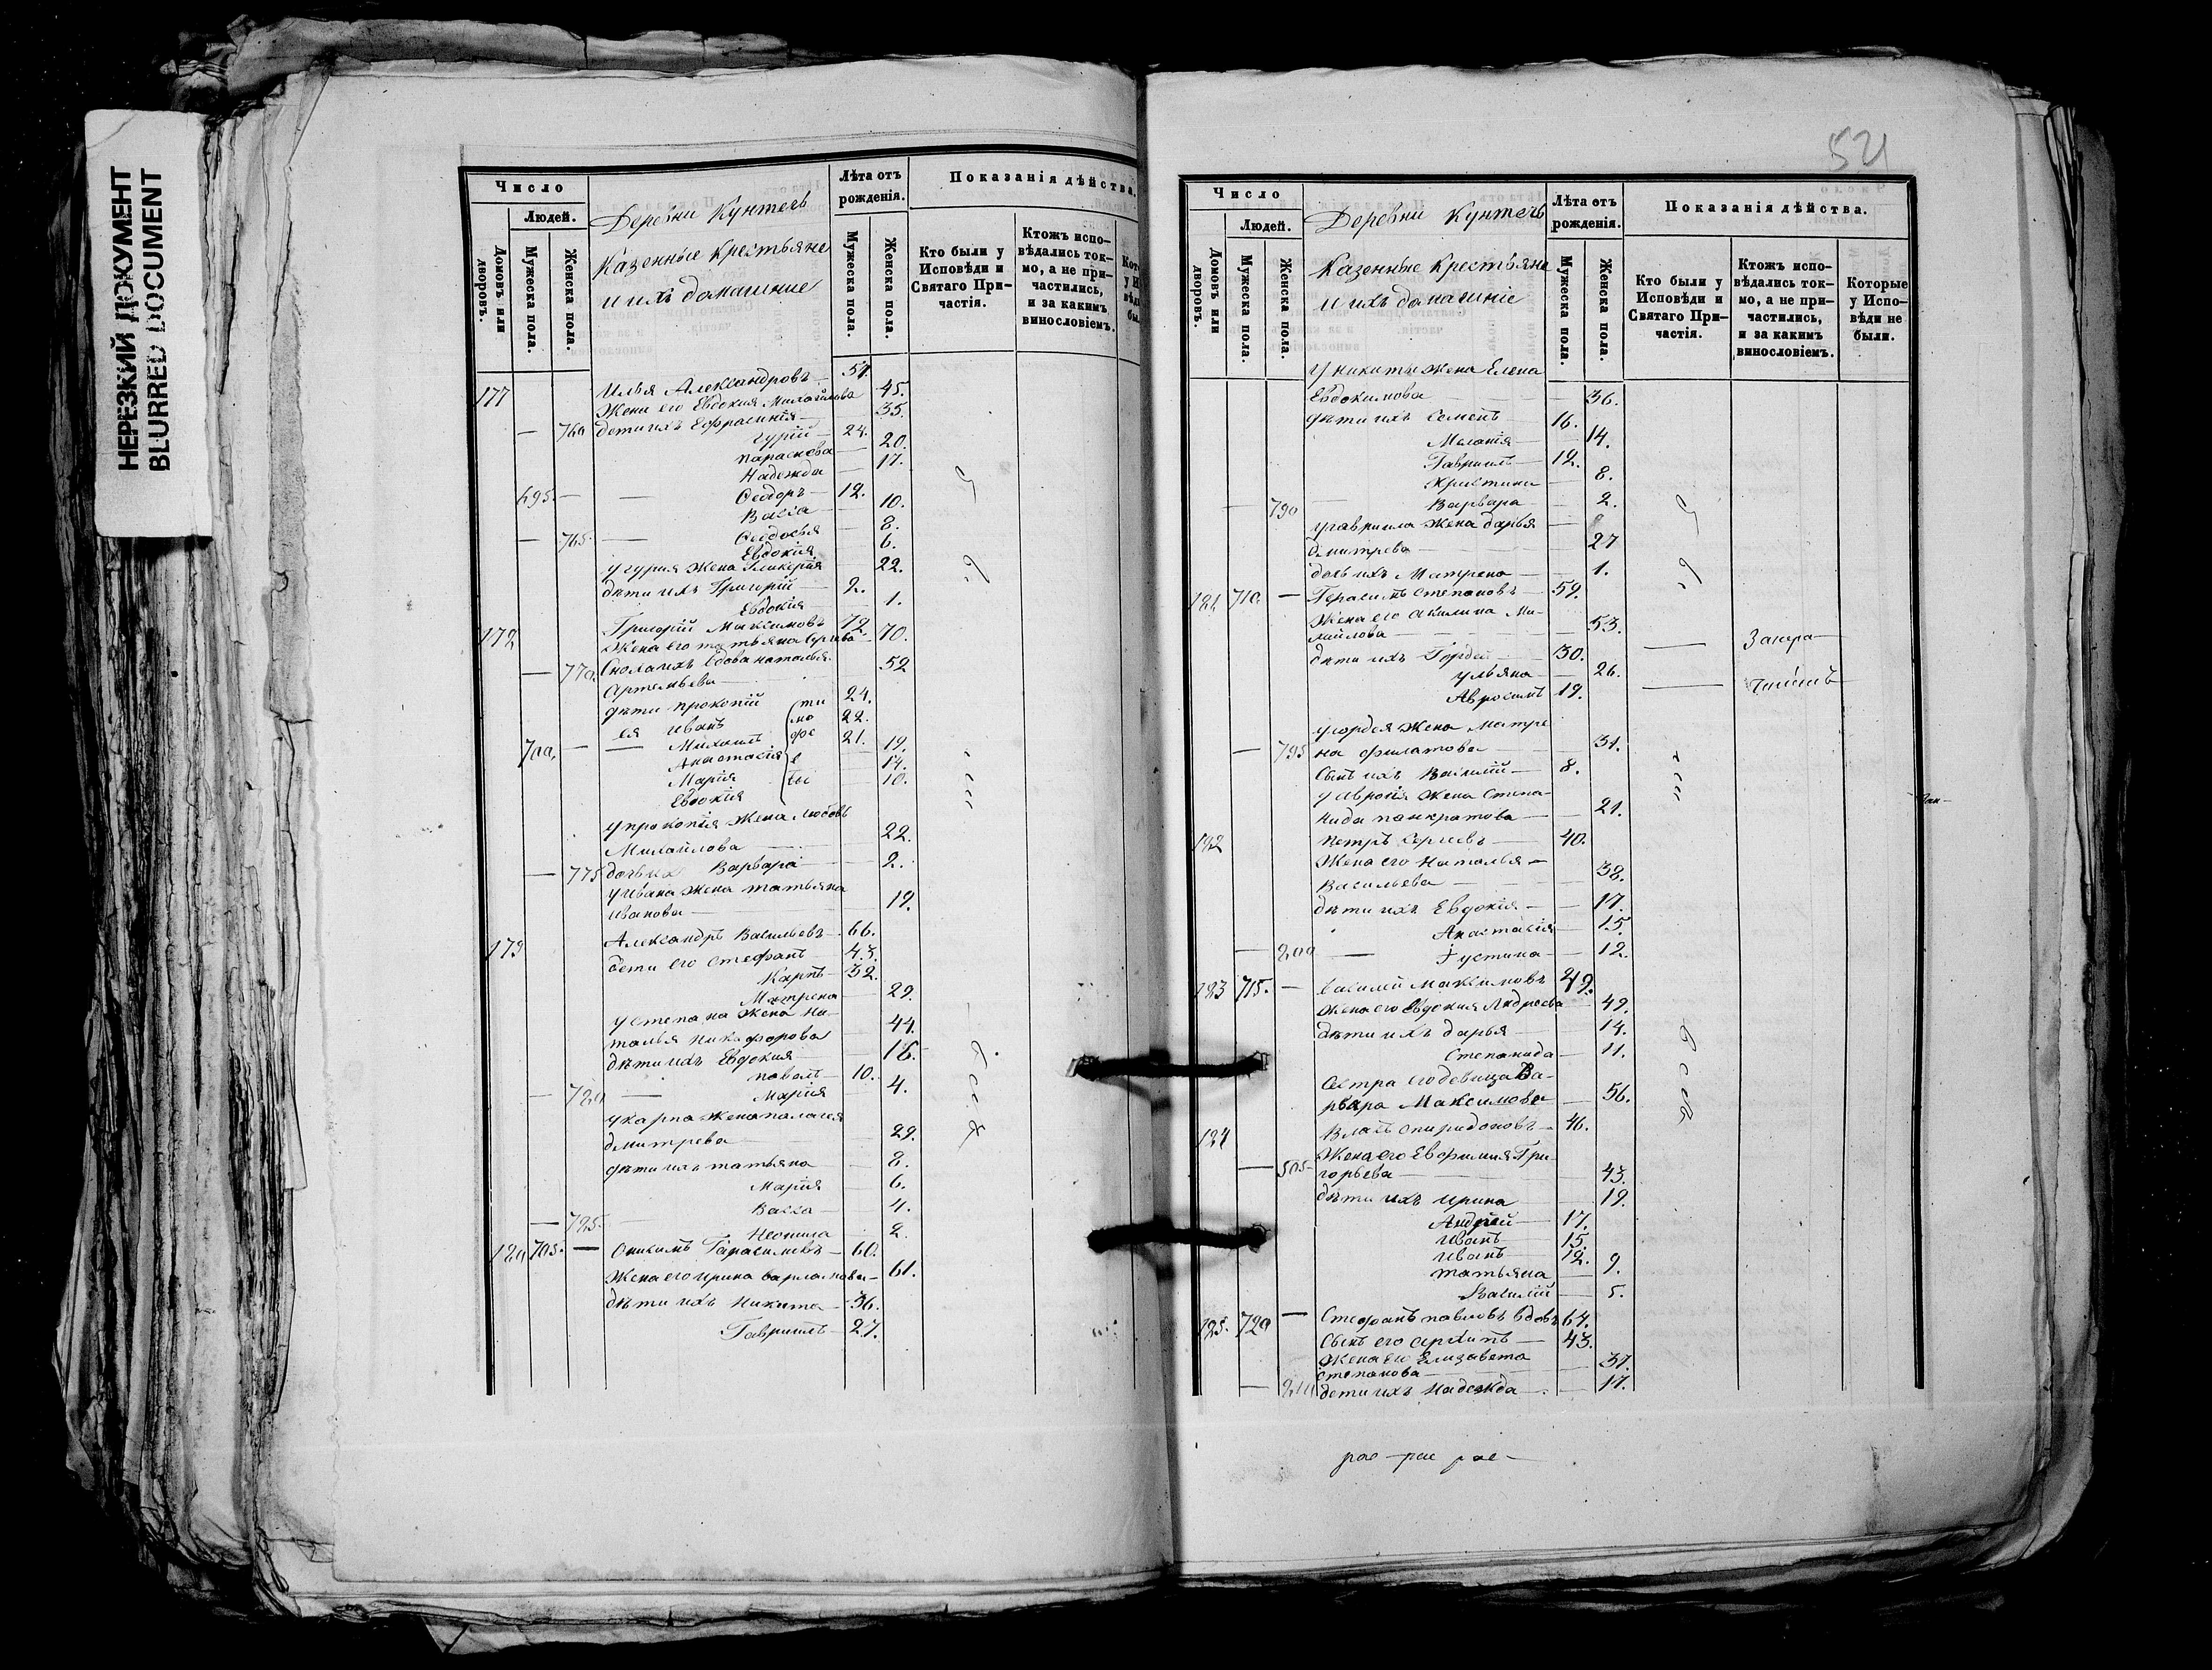 НЕРЕЗКИЙ ДОКУМЕНТ
BLURRED DOCUMENT
Число
Людей.
Домовъ или дворовъ.
Мужеска пола.
Женска пола.
Деревни Кунтечь
Казенные Крестьяне
и ихъ домашние
Лѣта отъ рожденія.
Мужеска пола.
Женска пола.
Показанія дѣйства.
Кто были у Исповѣди и Святаго Причастія.
Ктожъ исповѣдались токмо, а не причастились, и за какимъ винословіемъ.
177 Илья Александровъ 57.
Жена его Евдокия Михайлова 45.
760 дети ихъ Евфрасиния 35.
Гурій 24.
Параскева 20.
Надежда 17.
695. Феодоръ 12.
Васса 10.
765. Феодосья 8.
Евдокія 6.
у Гурия жена Гликерія 22.
дѣти ихъ Григорій 2.
Евдокія 1.
178 Григорій Максимовъ 72.
Жена его татьяна 70.
770. Сноха ихъ вдова наталья 52
Артемьева
дѣти прокопій 24.
ея иванъ 22.
700. Михаилъ 21.
Анастасія 19.
Марія 14.
Евдокія 10.
у прокопія жена Любовь
Михайлова 22.
775 дочь их Варвара 2.
у ивана жена татьяна
иванова 19.
179 Александръ Васильевъ 66.
дети его стефанъ 43.
Карпъ 32.
Матрена 29.
у степана жена На-
талья Никифорова 44.
дѣти ихъ Евдокия 16.
павелъ 10.
780 Мария 4.
у карпа жена палагея
дмитрева 29.
дѣти ихъ татьяна 8.
Марія 6.
Васса 4.
785. Неонила 2.
180 705. Онисимъ Гарасимовъ 60.
Жена его ирина варламова 61.
дѣти ихъ Никита 36.
Гавриилъ 27.
521
Число
Людей.
Домовъ или дворовъ.
Мужеска пола.
Женска пола.
Деревни Кунтечь
Казенные Крестьяне
и ихъ домашніе
Лѣта отъ рожденія.
Мужеска пола.
Женска пола.
Показанія дѣйства.
Кто были у Исповѣди и Святаго Причастія.
Ктожъ исповѣдались токмо, а не причастились, и за какимъ винословіемъ.
Которые у Исповѣди не были.
У никиты жена Елена
Евдокимова 36.
дѣти ихъ Семенъ 16.
Меланія 14.
Гавриилъ 12.
Христина 8.
790 Варвара 2.
у гавриила жена дарья
дмитрева 27
дочь ихъ Матрена 1.
181 710. Герасимъ Степановъ 59.
Жена его акилина Ми-
хайлова 53.
дѣти ихъ Гордей 30.
ульяна 26.
Авросимъ 19.
у гордея жена Матре
795 на филатова 31.
Сынъ ихъ Василій 8.
у Авросія жена Степа-
нида панкратова 21.
182 Петръ Сергеевъ 40.
Жена его Наталья
Васильева 38.
дѣти ихъ Евдокія 17.
Анастасія 15.
800 Іустина 12.
183 715. Василий Максимовъ 49.
жена его Евдокия Андреева 49.
дѣти ихъ дарья 14.
Степанида 11.
Сестра его девица Ва-
рвара Максимова 56.
184 Власъ спиридоновъ 46.
Жена его Евфимия Гри-
505 горьева 43.
дѣти ихъ ирина 19.
Андрей 17.
иванъ 15.
иванъ 12.
татьяна 9.
Василій 5.
185. 720 Стефанъ павловъ вдовъ 64.
Сынъ его архипъ 43.
Жена его Елизавета
степанова 37.
810 дети ихъ Надежда 17.